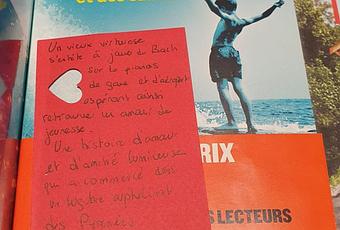 et des
Un vieux virtuose
s'entête à jouer du Bach
sur les pianos
de gare et d'aéroport
espérant ainsi
retrouver un amour de
jeunesse.
Une histoire d'amour
et d'amitié lumineuse
qui a commencé dans
un orphelinat
des Pyrénées
RIX
S LECTEURS